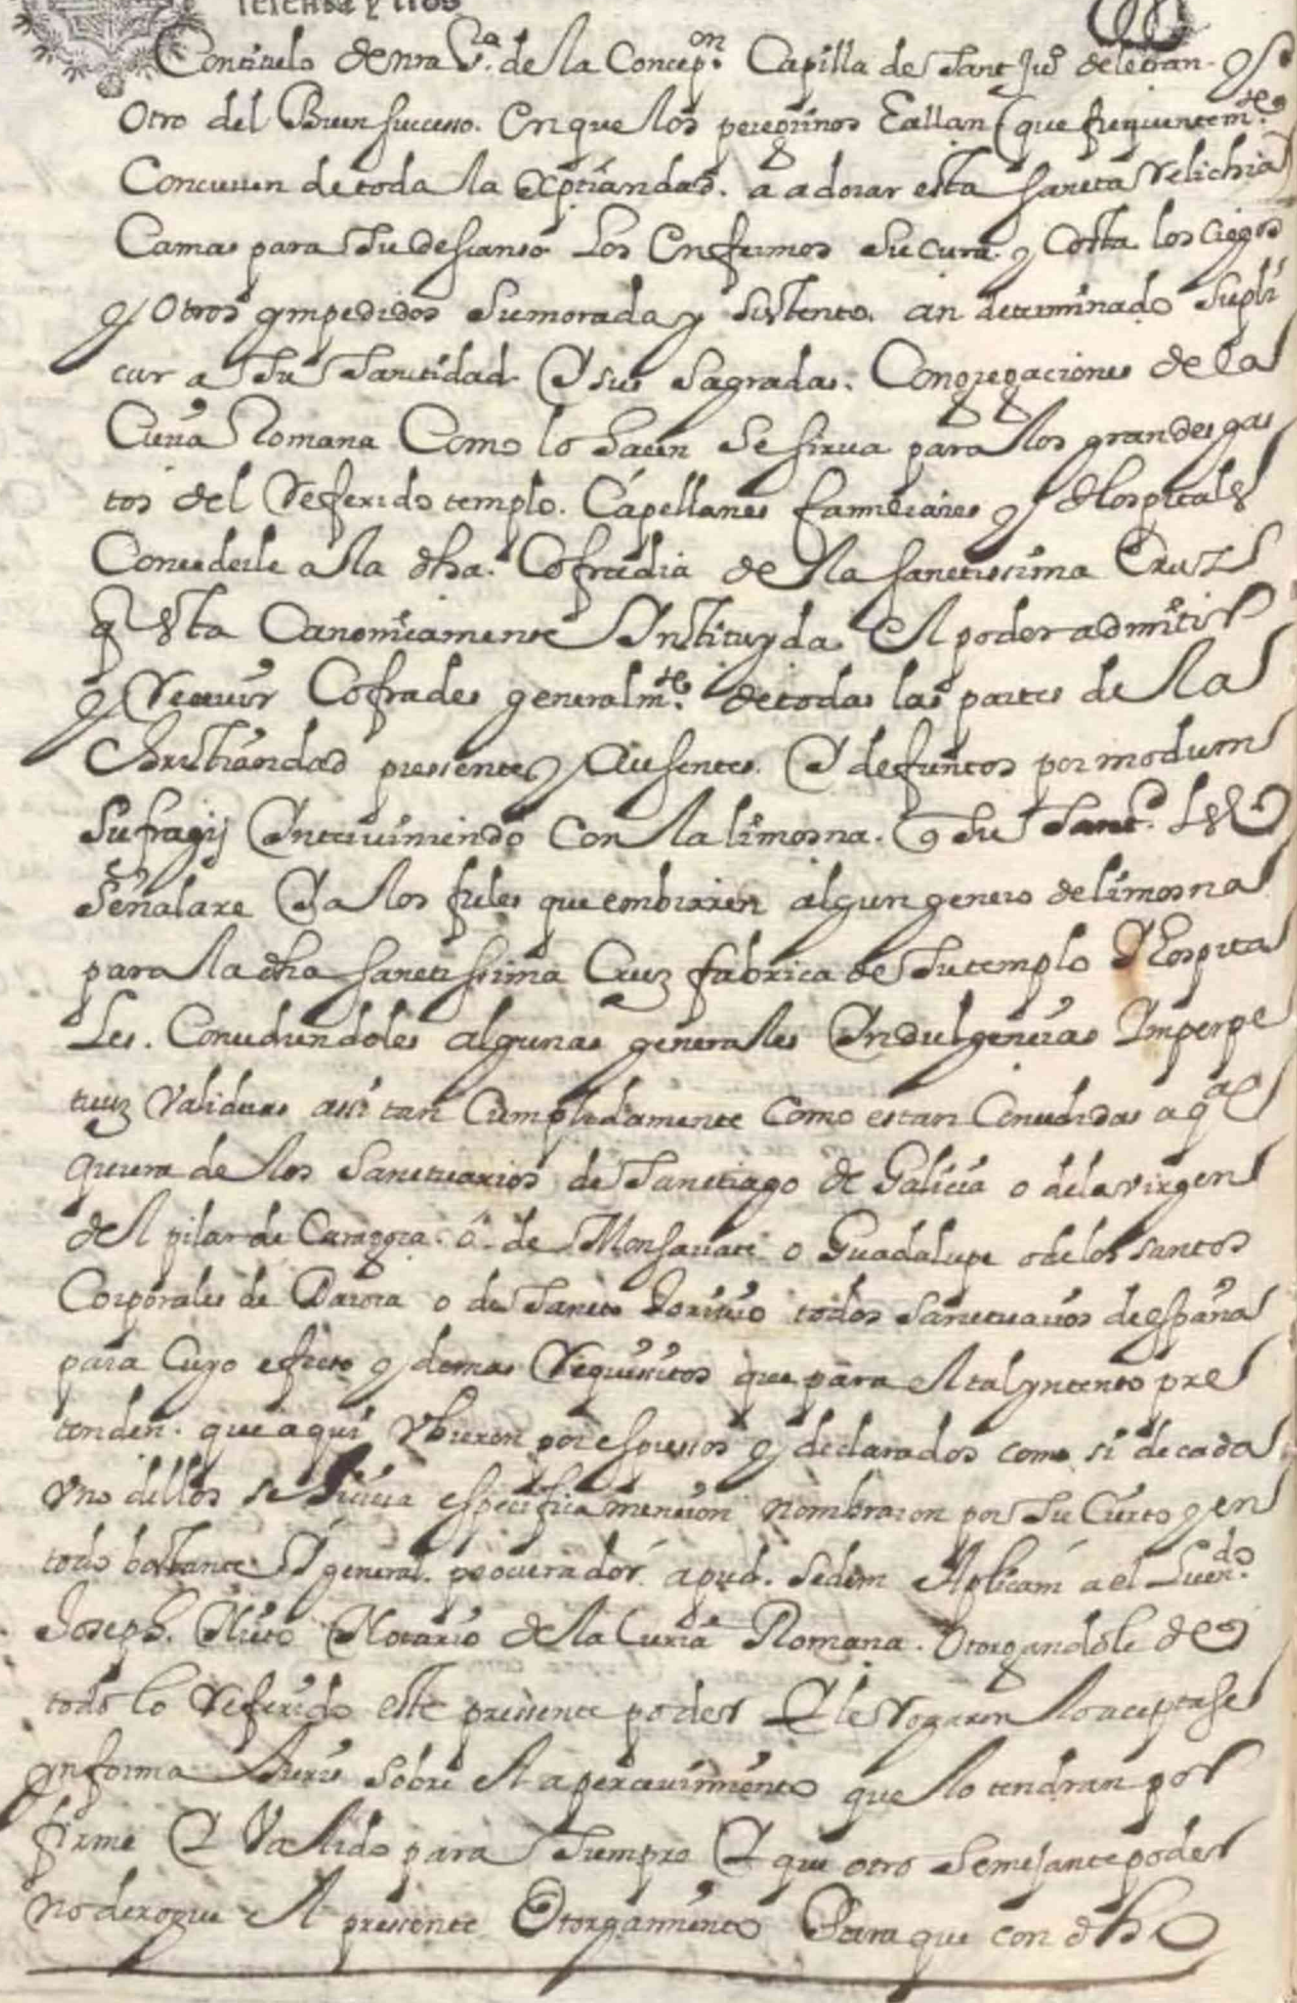 Contitulo de nra S.ª de la Concep.on Capilla de Sant Juº deletran. y
Otro del Buen suceso. En que los peregrinos Eallan (que frequentem.te
Concurren de toda la Xptiandad. a adorar esta sancta Relichia)
Camas para Su descanso Los Enfermos Su cura. y Costa los ciegos
y Otros ympedidos Su morada y Sustento. an determinado Supli
car a Su Sanctidad E sus Sagradas. Congregaciones de la
Curia Romana Como lo hacen Se sirva para los grandes gas
tos del Referido templo. Capellanes familiares y Hospitales
Concederle a la dha. Cofradia de la sanctissima Cruz
q esta Canonicamente Instituyda El poder admitir
y Recevir Cofrades generalm.te de todas las partes de la
Christiandad pressentes y Ausentes. E defuntos por modum
Sufragij Interviniendo Con la limosna. q Su Sanct.d les
Señalare E a los fieles que embiaren algun genero de limosna
para la dha sanctissima Cruz fabrica de Su templo E Hospita
Les. Concediendoles algunas generales Indulgencias Imperpe
tuuz Validuras assi tan Cumplidamente como estan Concedidas a qal
quiera de los Sanctuarios de Sanctiago de Galicia o de la virgen
del pilar de Caragoza. ô. de Monsarrate o Guadalupe o de los santos
Corporales de Daroca o de Sancto Torivio todos Sanctuarios de españa
para Cuyo efecto y demas Requisitos que para el tal yntento pre
tenden. que aqui Vbieron por espressos y declarados como si de cada
Vno dellos se hiciera especifica mencion nombraron por Su Cierto y en
todo bastante E general. procurador. apud. Sedem Aplicam a el Licen.do
Joseph. Nieto Notario de la Curia Romana. Otorgandole de
todo lo Referido este pressente poder E le Rogaron lo aceptase
ynforma Iuris sobre el apercevimiento que lo tendran por
firme E Valido para Siempre E que otro Semejante poder
no derogue el pressente Otorgamiento Para que con dho